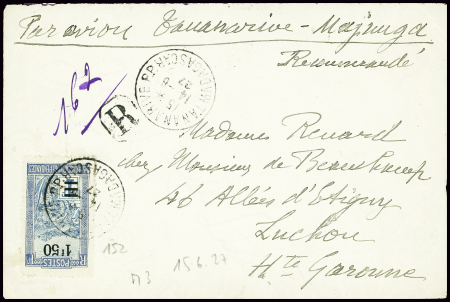 Par avion Tananarive - Majunga
Recommandé
167
R
TANANARIVE R.P.
MADAGASCAR
27
Madame Renard
chez Monsieur de Beauchamp
46 Allées d'Etigny
Luchon
Hte Garonne
POSTES
1F50
152
M3
15.6.27